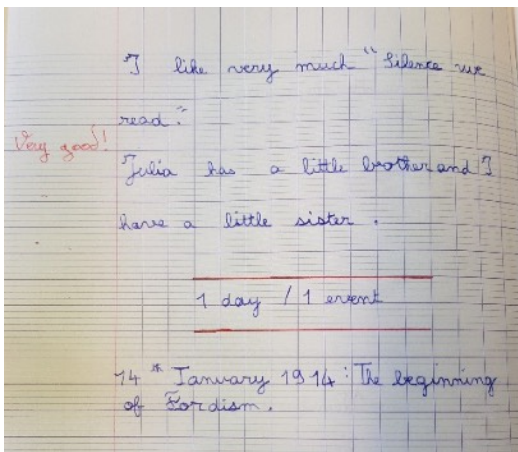 I like very much "Silence we
read."
Very good!
Julia has a little brother and I
have a little sister.
1 day / 1 event
14th January 1914: The beginning
of Fordism.